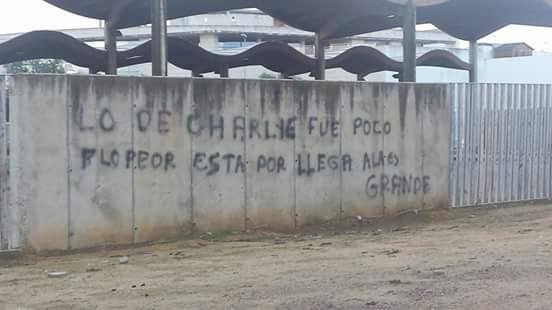 LO DE CHARLYE FUE POCO
FLOPEOR ESTA POR LLEGA ALA ES
GRANDE